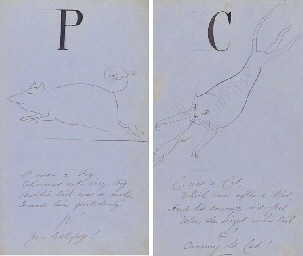 P
P was a Pig
Who was not very big
But his tail was so curly
It made him quite surly
P!
poor little pig!
C
C was a Cat
Which ran after a Rat
And his courage did fail
When she seized on his tail
C!
Cunning old Cat!